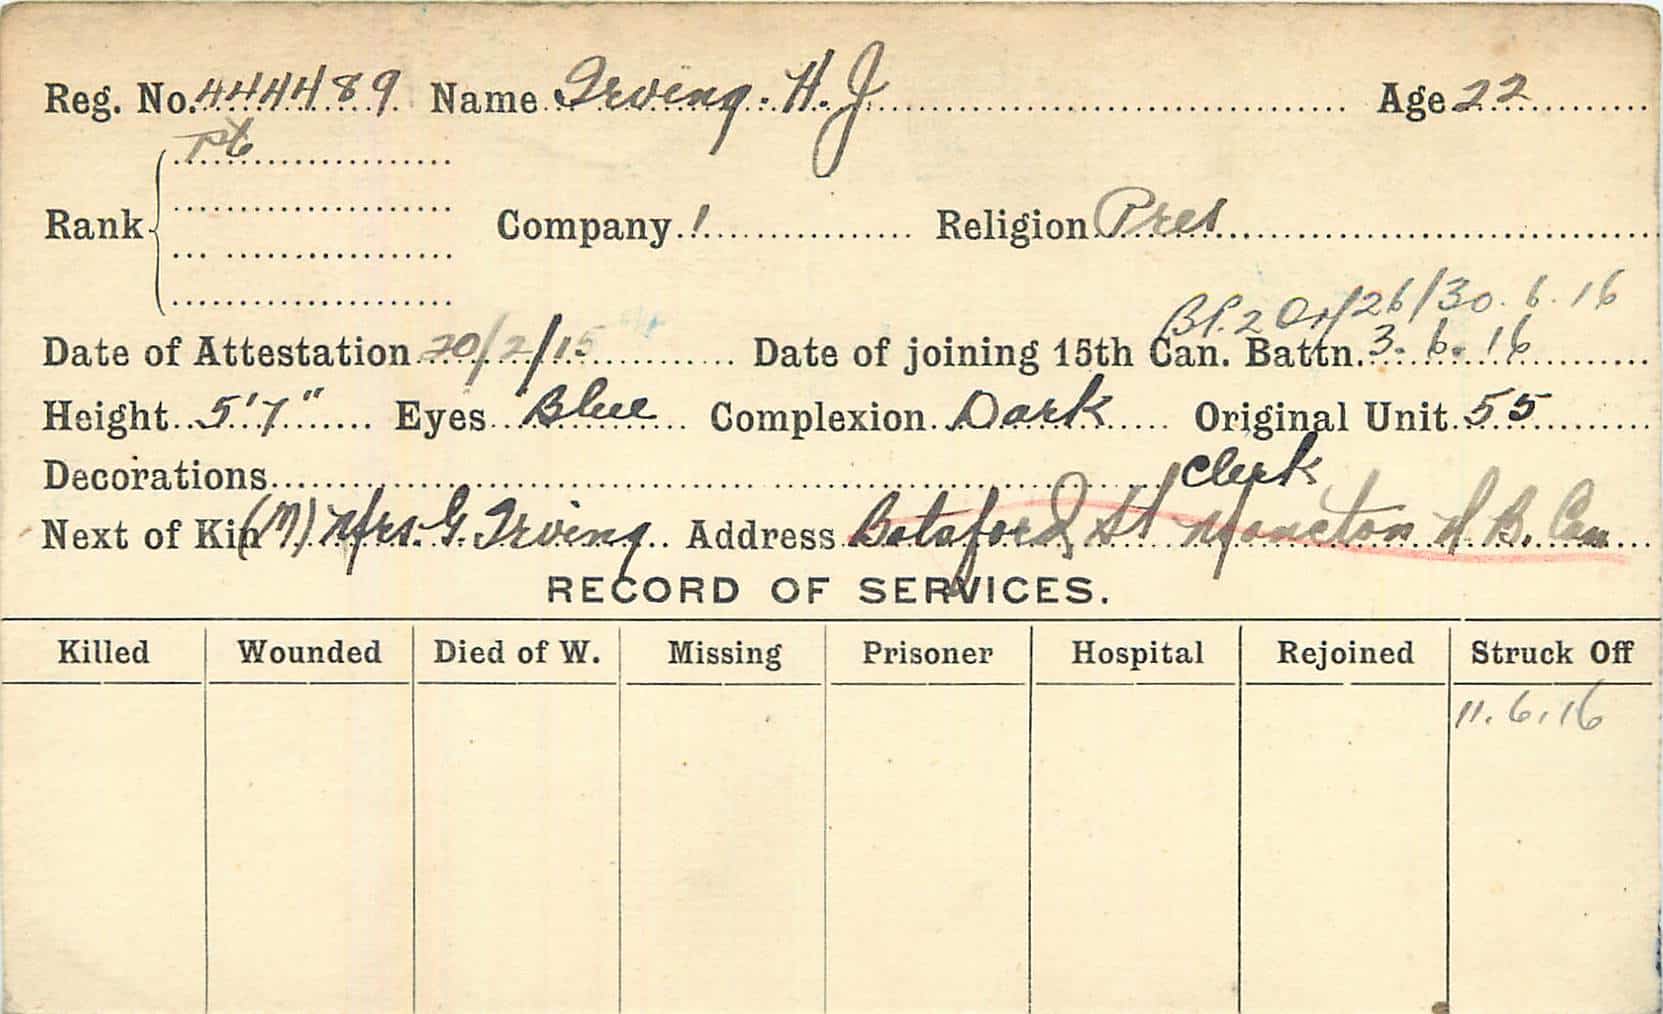 Reg. No. 444489 Name Irving. H. J Age 22
Pte
Rank Company 1 Religion Pres
30. 6. 16
Date of Attestation 20/2/15 Date of joining 15th Can. Battn. 3. 6. 16
Height 5'7" Eyes Blue Complexion Dark Original Unit 55
Decorations Clerk
Next of Kin (M) Mrs. G. Irving Address Botsford St Moncton N B. Can
RECORD OF SERVICES.
Killed Wounded Died of W. Missing Prisoner Hospital Rejoined Struck Off
11. 6. 16